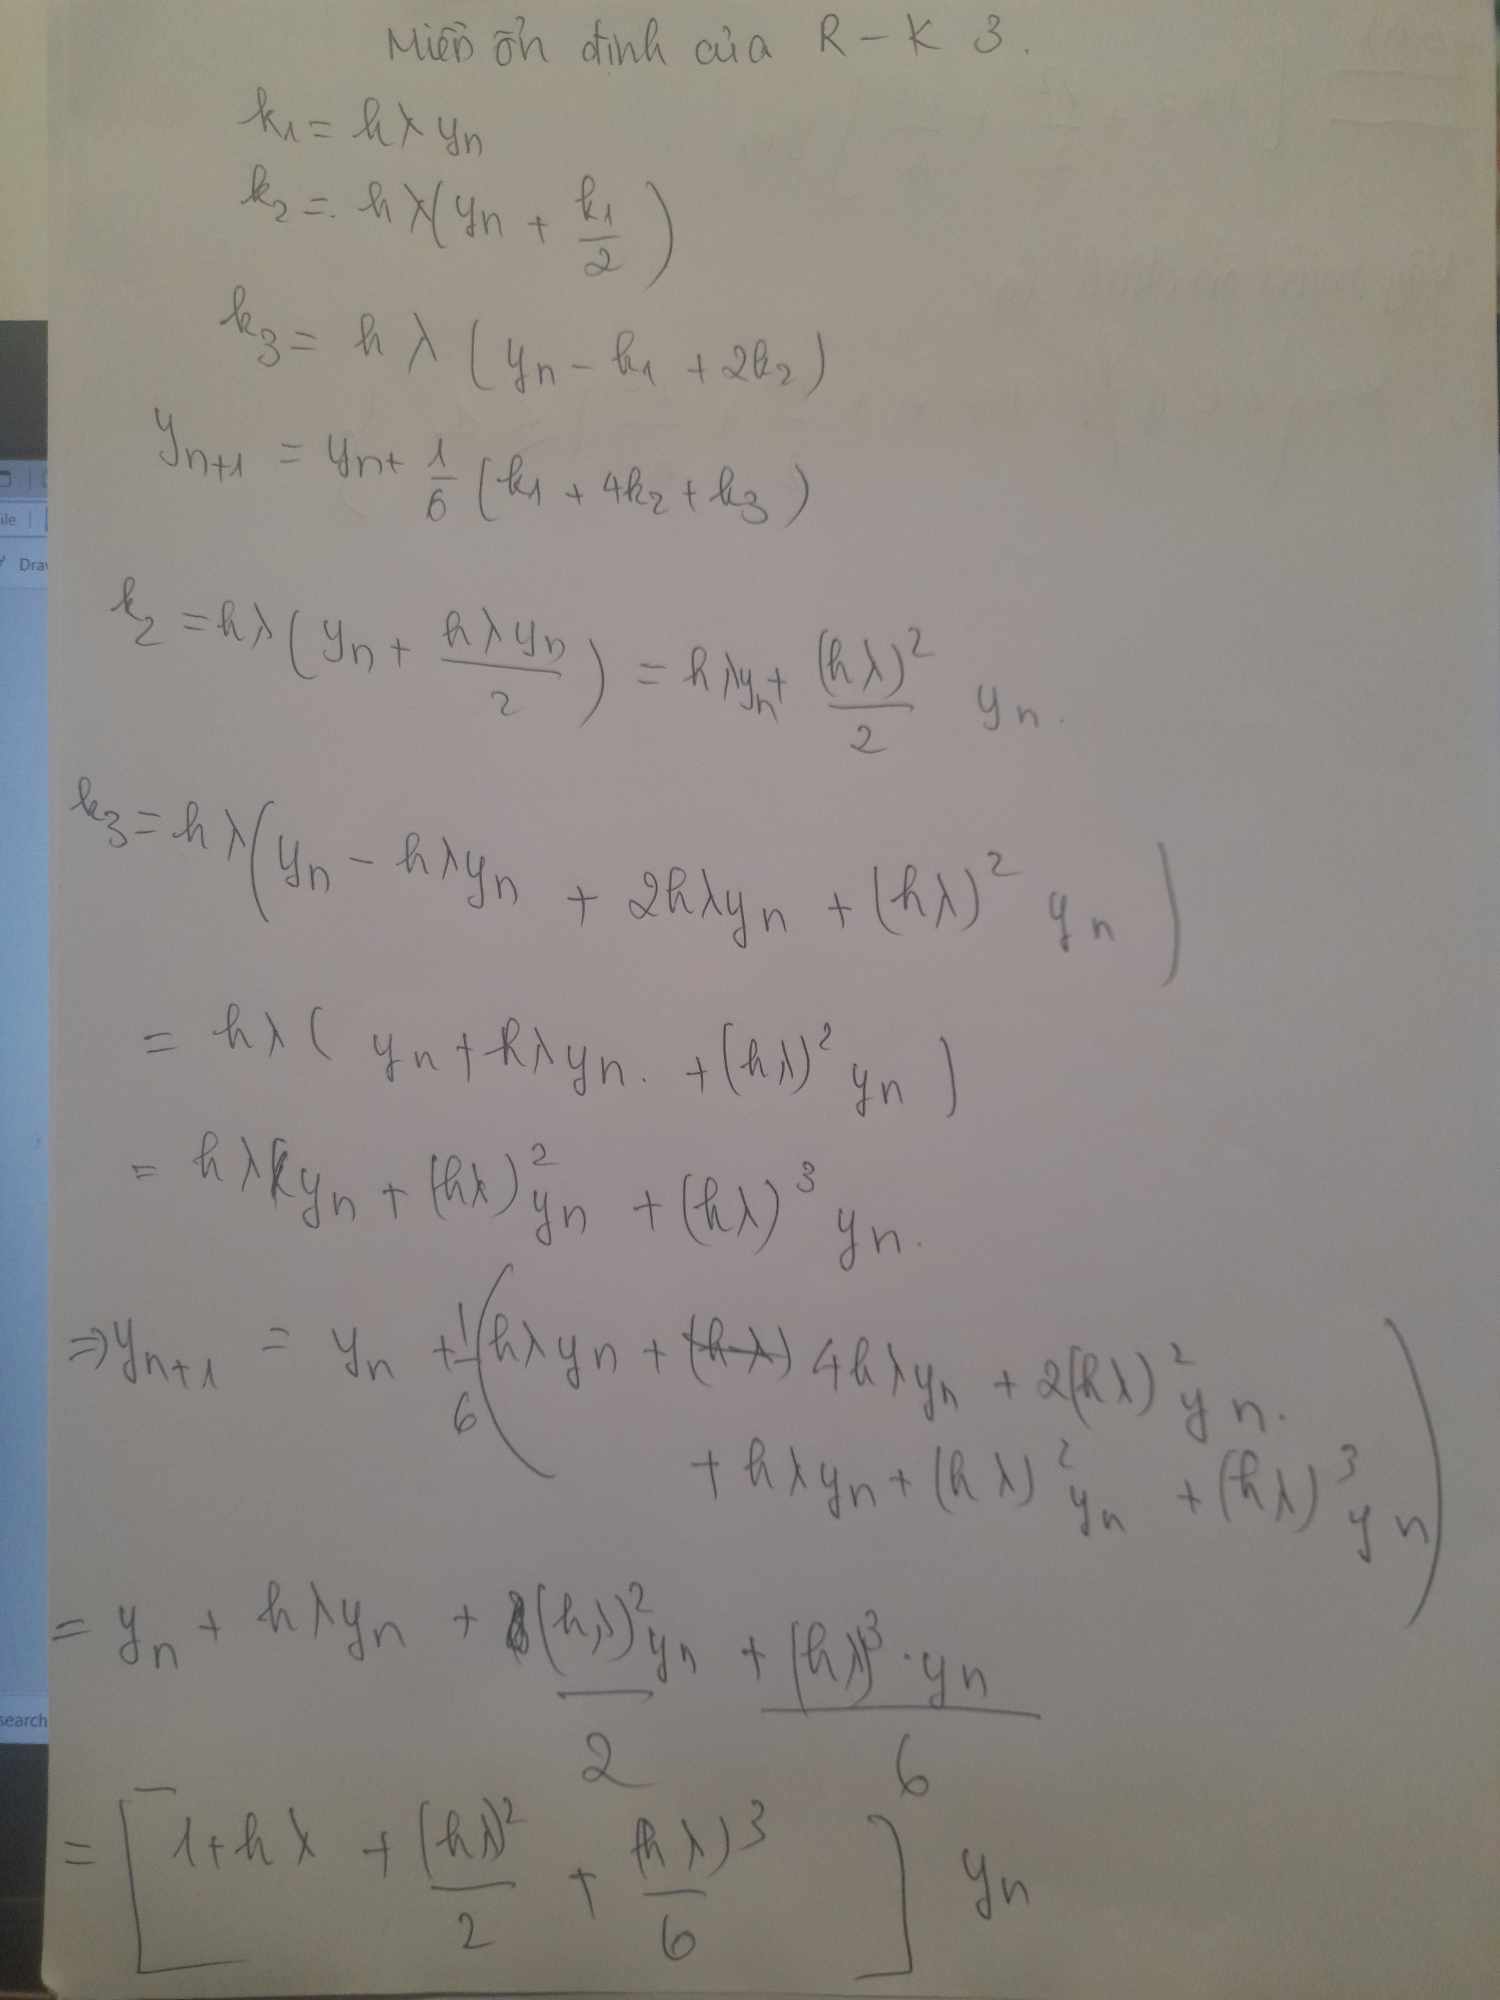 Miền ổn định của R-K 3.
k₁ = hλyₙ
k₂ = hλ(yₙ + k₁/2)
k₃ = hλ(yₙ - k₁ + 2k₂)
yₙ₊₁ = yₙ + 1/6 (k₁ + 4k₂ + k₃)
k₂ = hλ(yₙ + hλyₙ/2) = hλyₙ + (hλ)²/2 yₙ.
k₃ = hλ(yₙ - hλyₙ + 2hλyₙ + (hλ)² yₙ)
= hλ(yₙ + hλyₙ. + (hλ)² yₙ)
= hλyₙ + (hλ)² yₙ + (hλ)³ yₙ.
⇒ yₙ₊₁ = yₙ + 1/6 (hλyₙ + 4hλyₙ + 2(hλ)² yₙ.
+ hλyₙ + (hλ)² yₙ + (hλ)³ yₙ)
= yₙ + hλyₙ + (hλ)² yₙ/2 + (hλ)³·yₙ/6
= [1 + hλ + (hλ)²/2 + (hλ)³/6] yₙ
ile
Draw
search